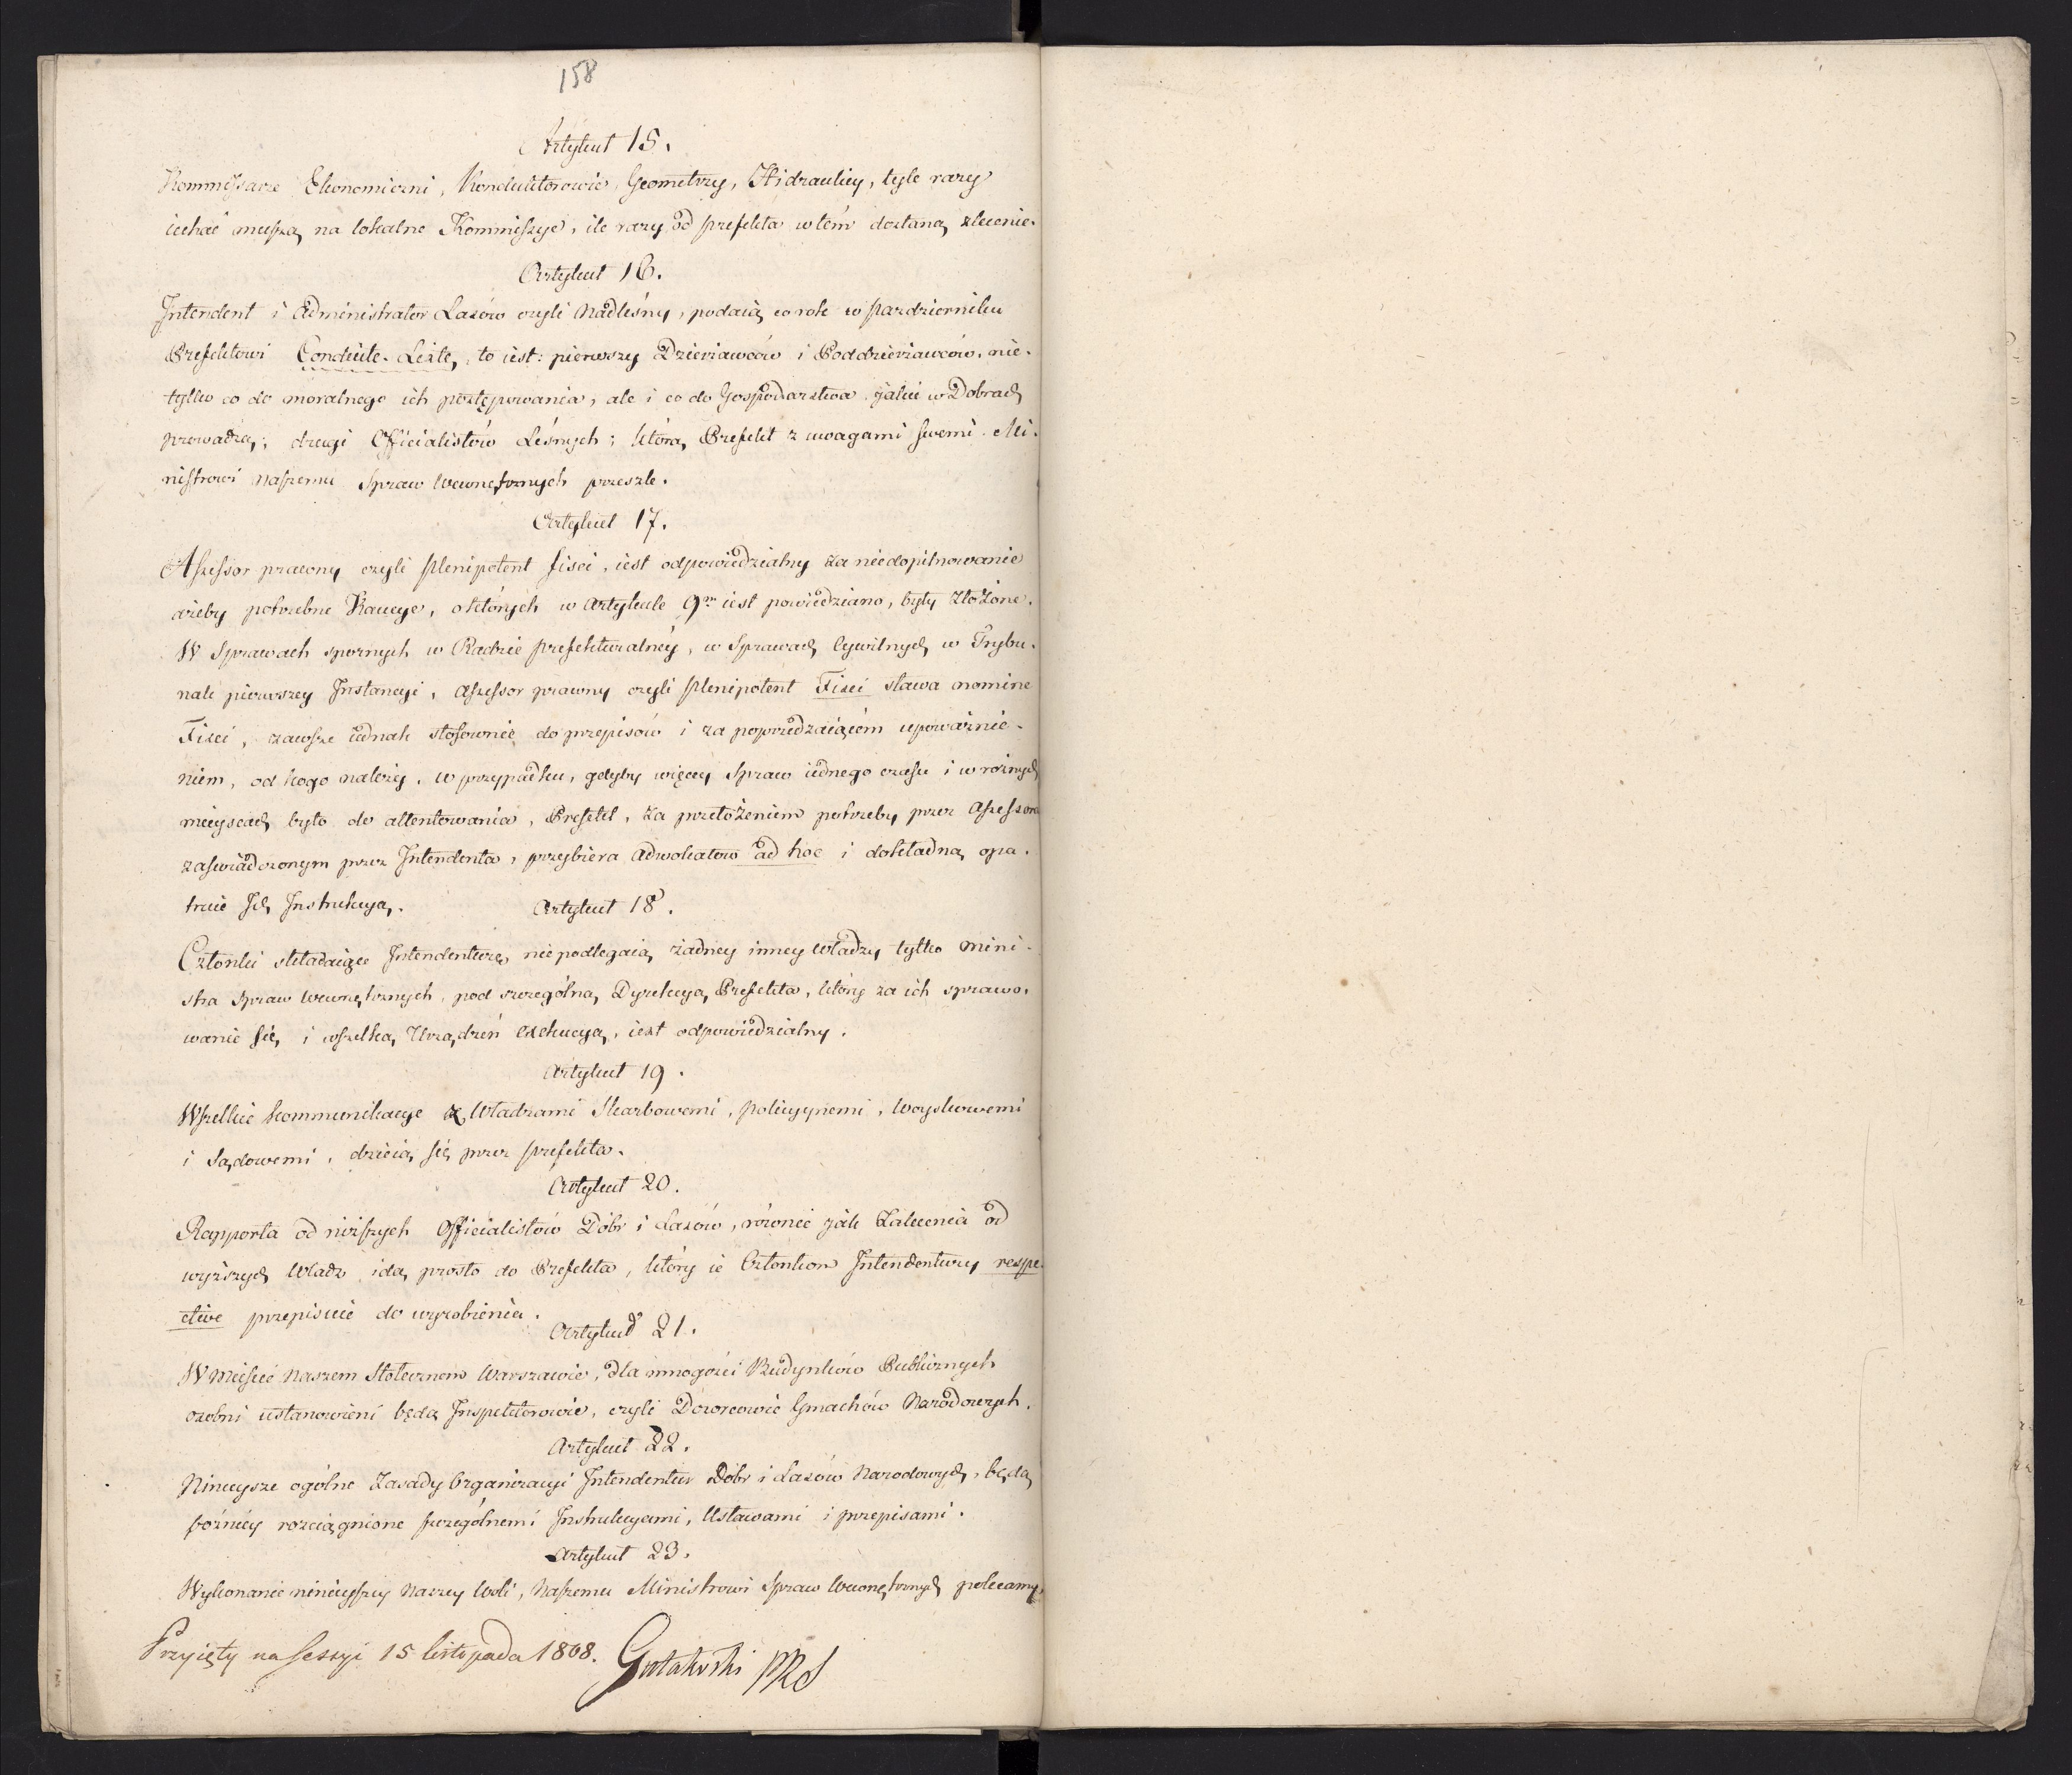 158
Artykuł 15.
Kommissarze Ekonomiczni, Konduktorowie, Geometrzy, Hidraulicy, tyle razy
iechać muszą na lokalne Kommissye, ile razy od Prefekta w tém dostaną zlecenie.
Artykuł 16.
Intendent i Administrator Lasów czyli Nadleśny, podaią co rok w Pazdzierniku
Prefektowi Conduite-Listę, to iest: pierwszy Dzierżawców i Poddzierżawców, nie-
tylko co do moralnego ich postępowania, ale i co do Gospodarstwa jakie w Dobrach
prowadzą; drugi Officialistów Leśnych; którą Prefekt z uwagami swemi Mi-
nistrowi Naszemu Spraw Wewnętrznych prześle.
Artykuł 17.
Assessor prawny czyli Plenipotent fisci, iest odpowiedzialny za niedopilnowanie
ażeby potrzebne Kaucye, o których w Artykule 9m iest powiedziano, były złożone.
W Sprawach spornych w Radzie prefekturalnéy, w Sprawach Cywilnych w Trybu-
nale pierwszey Instancyi, Assessor prawny czyli Plenipotent Fisci stawa nomine
Fisci, zawsze iednak stosownie do przepisów i za poprzedzaiącém upoważnie-
niem, od kogo należy. W przypadku, gdyby więcey Spraw iednego czasu i w roznych
mieyscach było do attentowania, Prefekt, za przełożeniem potrzeby przez Assessora
zaswiadczonym przez Intendenta, przybiera Adwokatow ad hoc i dokładną opa-
truie Jch Instrukcyą.
Artykuł 18.
Członki składaiące Intendenturę niepodlegaią żadney inney Władzy tylko Mini-
stra Spraw Wewnętrznych, pod szczególną Dyrekcyą Prefekta, który za ich sprawo-
wanie się, i wszelką Urządzeń exekucyą, iest odpowiedzialny.
Artykuł 19.
Wszelkie kommunikacye z Władzami Skarbowemi, policyynemi, Woyskowemi
i Sądowemi, dzieią się przez Prefekta.
Artykuł 20.
Rapporta od niższych Officialistów Dóbr i Lasów, równie jak Zalecenia od
wyższych Władz idą prosto do Prefekta, który ie Członkom Intendentury respe-
ctive przepisuie do wyrobienia.
Artykuł 21.
W Mieście Naszem Stołecznem Warszawie, dla mnogości Budynków Publicznych
osobni ustanowieni będą Inspektorowie, czyli Dozorcowie Gmachów Narodowych.
Artykuł 22.
Ninieysze ogólne Zasady Organizacyi Intendentur Dóbr i Lasów Narodowych, będą
poźniéy rozciągnione szczególnemi Instrukcyami, Ustawami i przepisami.
Artykuł 23.
Wykonanie ninieyszey Naszey Woli, Naszemu Ministrowi Spraw Wewnętrznych polecamy.
Przyięty na Sessyi 15 listopada 1808. Gutakowski PRS